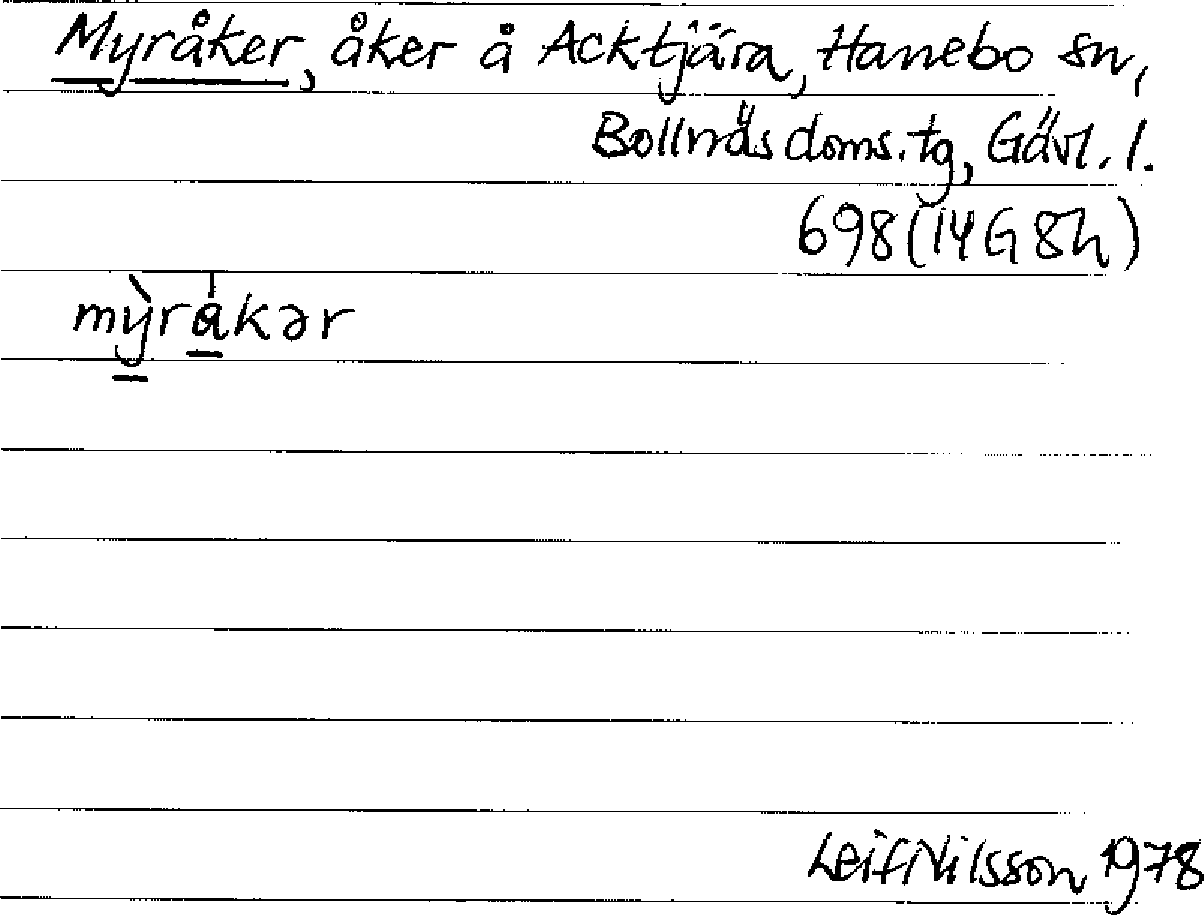 Myråker, åker å Acktjära, Hanebo sn,
Bollnäs doms.tg, Gävl. l.
698 (14G 8h)
mỳ̠ra̠̍kər
Leif Nilsson 1978